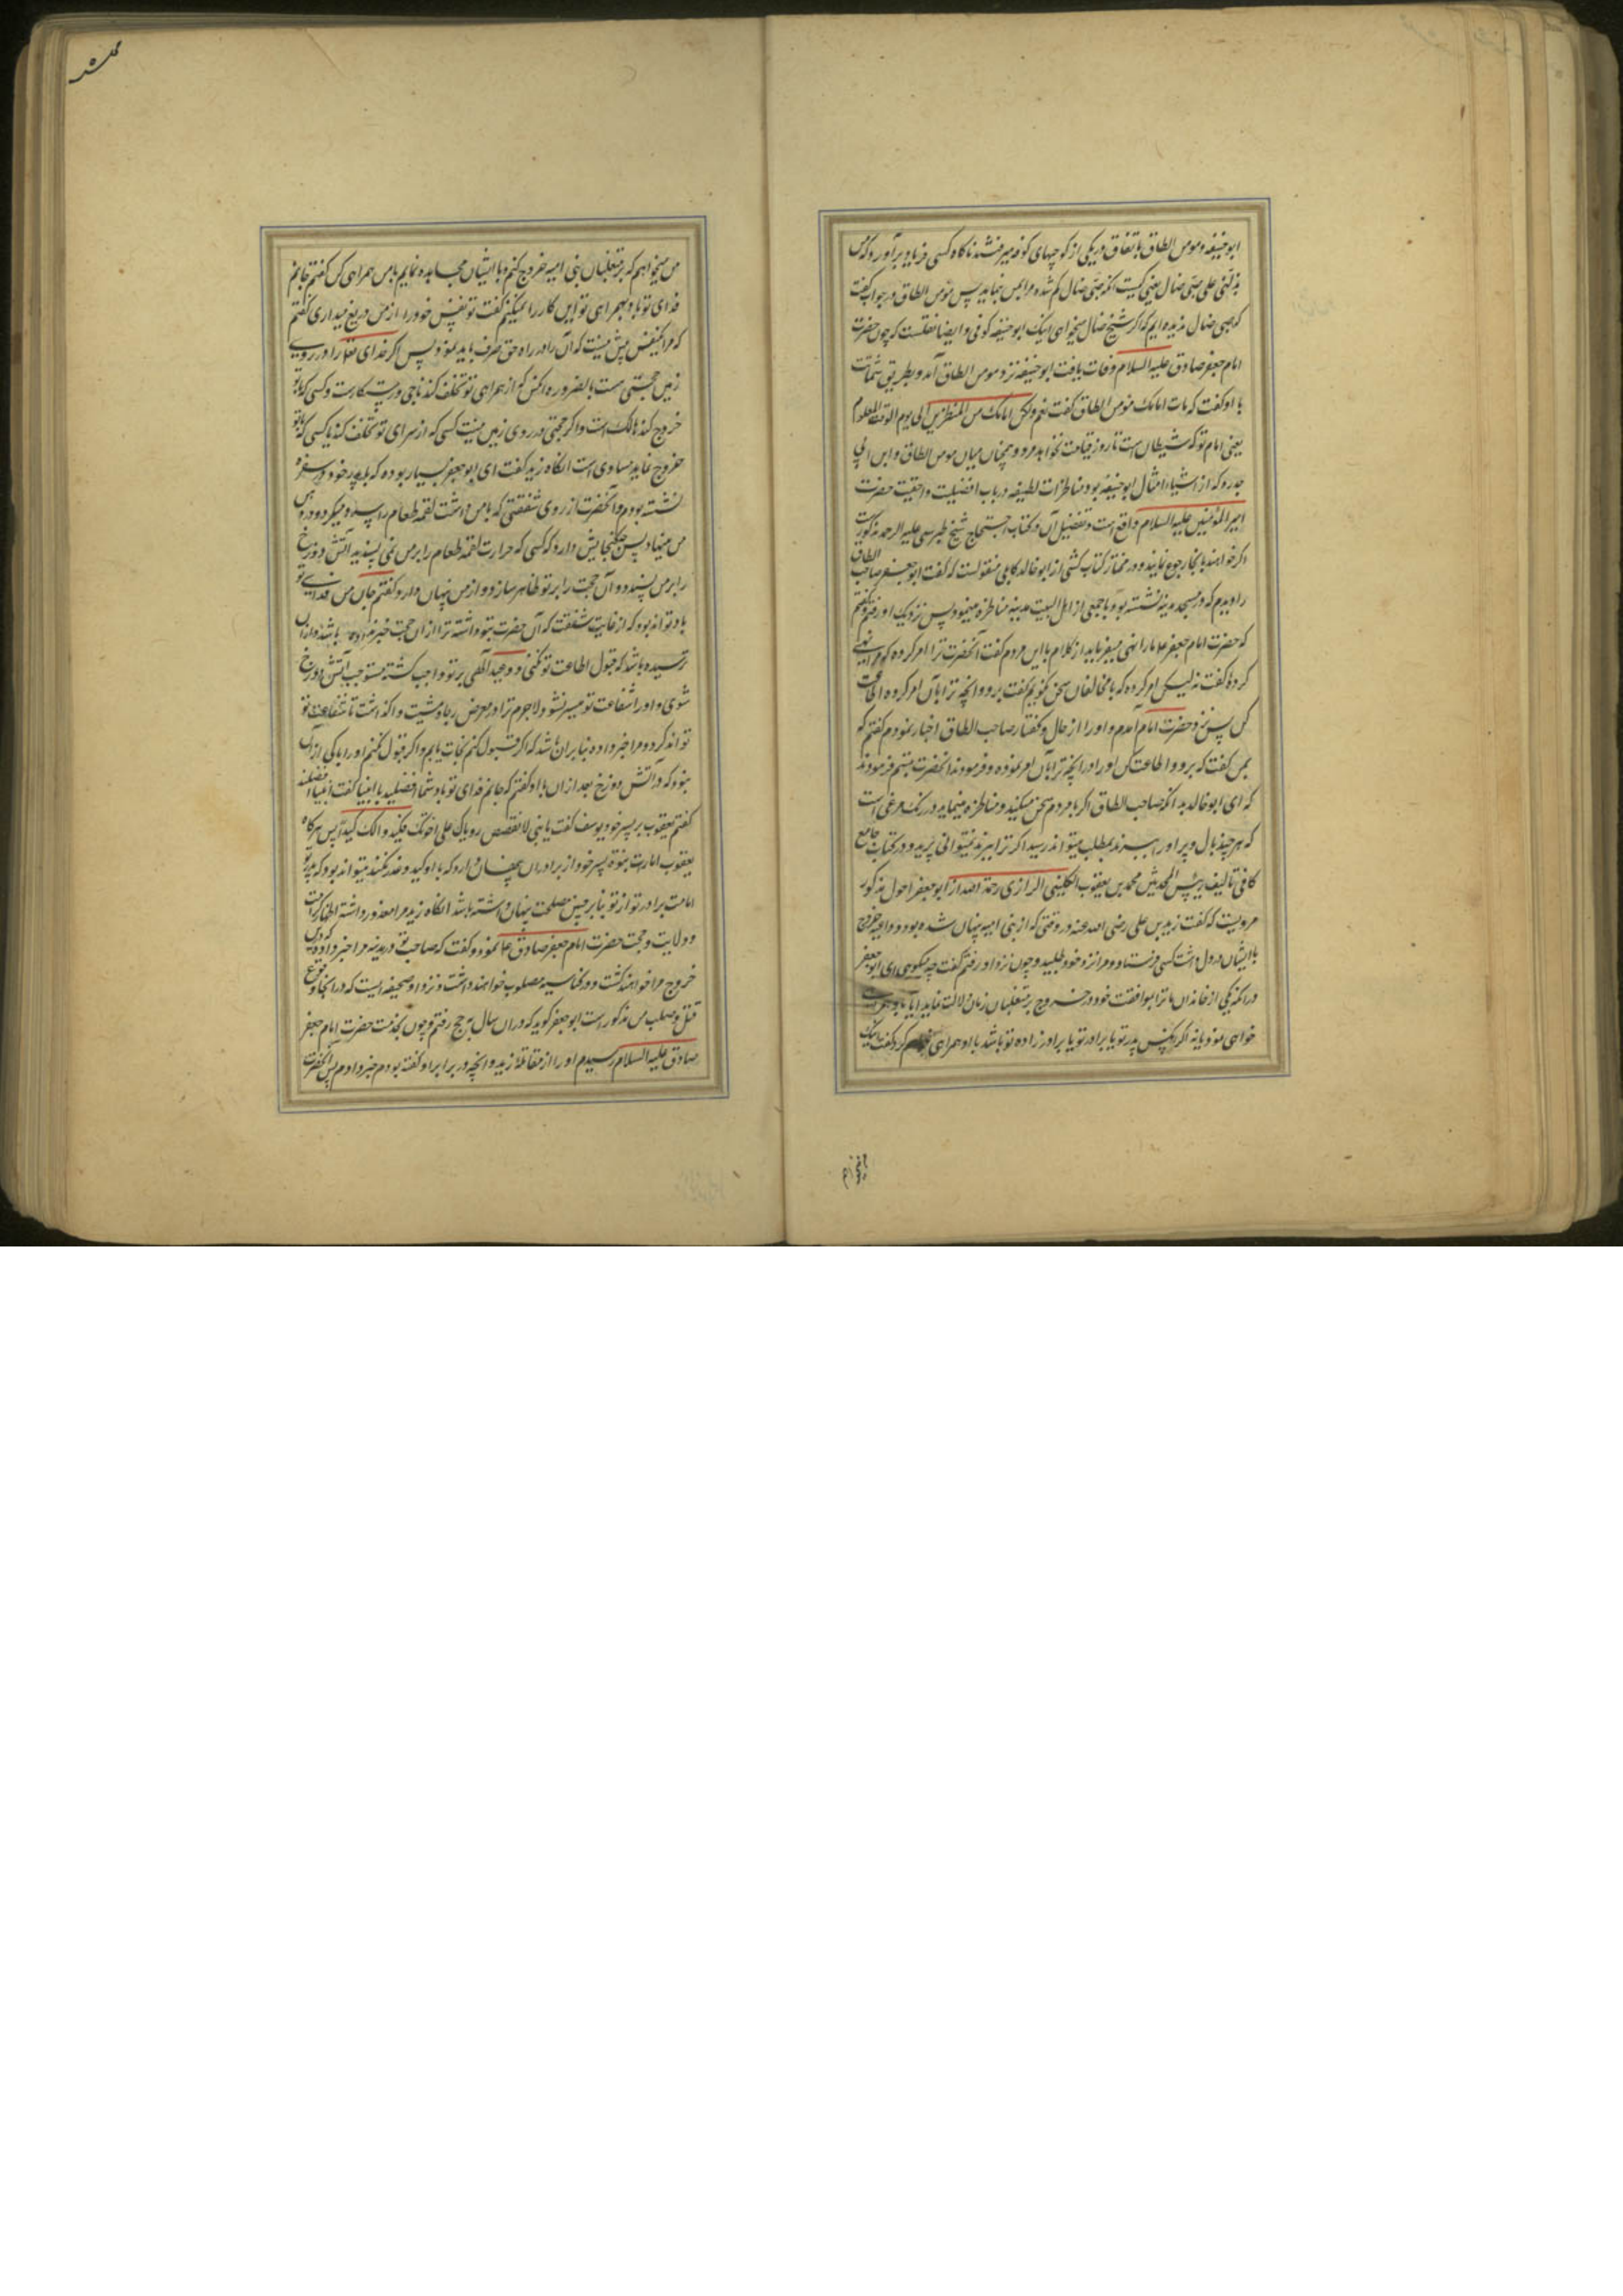 ابو حنیفه و مومن الطاق باتفاق در یکی از کوچهای کوفه میرفتند ناکاه کسی فریاد برآورد که من
یدلنی علی صبی ضال یعنی کیست که صبی ضال کم شده مرا بمن نماید پس مومن الطاق در جواب گفت
که صبی ضال ندیده ایم که اگر شیخ ضال میخواهی اینک ابو حنیفه کوفی و ایضا نقلست که چون حضرت
امام جعفر صادق علیه السلام وفات یافت ابو حنیفه نزد مومن الطاق آمد و بطریق شماتت
با او کفت که مات امامک مومن الطاق کفت نعم ولکن امامک من المنظرین الی یوم الوقت المعلوم
یعنی امام تو که شیطان است تا روز قیامت نخواهد مرد و همچنان میان مومن الطاق و ابن ابی
حدره که از اشیاء امثال ابو حنیفه بود مناظرات لطیفه در باب افضلیت و احقیت حضرت
امیر المؤمنین علیه السلام واقع است و تفضیل آن در کتاب احتجاج شیخ طبرسی علیه الرحمه مذکورست
اکر خواهند بانجا رجوع نمایند و در مختار کتاب کشی از ابو خالد کابلی منقولست که کفت ابو جعفر صاحب الطاق
را دیدم که در مسجد مدینه نشسته بود و با جمعی از اهل البیت مدینه مناظره مینمود پس نزدیک او رفتم و کفتم
که حضرت امام جعفر ع ما را نهی میفرماید از کلام با این مردم کفت آنحضرت ترا امر کرده که مرا نهی
کرده کفت نه لیکن امر کرده که با مخالفان سخن نکویم کفت برو و انچه ترا بآن امر کرده اطاعت
کن پس نزد حضرت امام آمدم و او را از حال و کفتار صاحب الطاق اخبار نمودم کفتم که
بمن کفت که برو و اطاعت کن او را در انچه ترا بآن امر نموده و فرموده اند آنحضرت تبسم فرمودند
که ای ابو خالد بدانکه صاحب الطاق اکر با مردم سخن میکند و مناظره مینماید در رنک مرغی است
که هر چند بال و پر او را ببرند بمطلب میتواند رسید اکر ترا ببرند نمیتوانی پرید و در کتاب جامع
کافی تالیف رئیس المحدثین محمد بن یعقوب الکلینی الرازی رحمة الله از ابو جعفر احول مذکور
مرویست که کفت زید بن علی رضی الله عنه در وقتی که از بنی امیه پنهان شده بود و داعیه خروج
با ایشان در دل داشت کسی فرستاد و مرا نزد خود طلبید و چون نزد او رفتم کفت چه میکویی ای ابو جعفر
در انکه یکی از خاندان ما ترا بموافقت خود در خروج بر متغلبان زمان دلالت نماید آیا با او همراهی
خواهی نمود یا نه کفتم اکر آنکس پدر تو یا برادر تو یا برادر زاده تو باشد با او همراهی خواهم کرد کفت اینک
من میخواهم که بر متغلبان بنی امیه خروج کنم و با ایشان مجاهده نمایم با من همراهی کن کفتم جانم
فدای تو باد بهمراهی تو این کار را نمیکنم کفت تو نفس خود را از من دریغ میداری کفتم
که مرا یکنفس بیش نیست که آن را در راه حق صرف باید نمود پس اکر خدای تعالی را در روی
زمین حجتی هست بالضروره انکس که از همراهی تو تخلف کند ناجی و رستکارست و کسی که با تو
خروج کند هالک است و اکر حجتی در روی زمین نیست کسی که از سرای تو تخلف کند با کسی که با تو
خروج نماید مساوی است انکاه زید کفت ای ابو جعفر بسیار بوده که با پدر خود بر سر سفره
نشسته بودم و آنحضرت از روی شفقتی که با من داشت لقمه طعام را سرد میکرد و در دهن
من مینهاد پس چه کنجایش دارد که کسی که حرارت لقمه طعام را بر من نمی پسندید آتش دوزخ
را بر من پسندد و آن حجت را بر تو ظاهر سازد و از من پنهان دارد کفتم جان من فدای تو
باد تواند بود که از غایت شفقت که آن حضرت بتو داشته ترا از ان حجت خبر نداده باشد و از آن
ترسیده باشد که قبول اطاعت تو نکنی و وعید الهی بر تو واجب کشته مستوجب آتش دوزخ
شوی و او را شفاعت تو میسر نشود لاجرم ترا در معرض رجا و مشیت واکذاشت تا شفاعت تو
تواند کرد و مرا خبر داده بنابر ان باشد که اکر قبول کنم نجات یابم و اکر قبول نکنم او را باکی از آن
نبود که در آتش دوزخ بعد از ان با او کفتم که جانم فدای تو باد شما افضلید یا انبیا کفت انبیا افضلند
کفتم یعقوب بر پسر خود یوسف کفت یا بنی لا تقصص رویاک علی اخوتک فیکیدوا لک کیدا پس هرکاه
یعقوب امارت بنوة پسر خود از برادران پنهان دارد که با او کید و غدر نکنند میتواند بود که پدر تو
امامت برادر تو از تو بنابر چنین مصلحت پنهان داشته باشد انکاه زید مرا معذور داشته اظهار امامت
و ولایت و حجت حضرت امام جعفر صادق ع نمود و کفت که صاحب تو در مدینه مرا خبر داده که در این
خروج مرا خواهند کشت و در کناسه مصلوب خواهند داشت و نزد او صحیفه ایست که در انجا وقوع
قتل و صلب من مذکور است ابو جعفر کوید که در ان سال بحج رفتم و چون بخدمت حضرت امام جعفر
صادق علیه السلام رسیدم او را از مقاله زید و انچه در برابر او کفته بودم خبر دادم پس آنحضرت